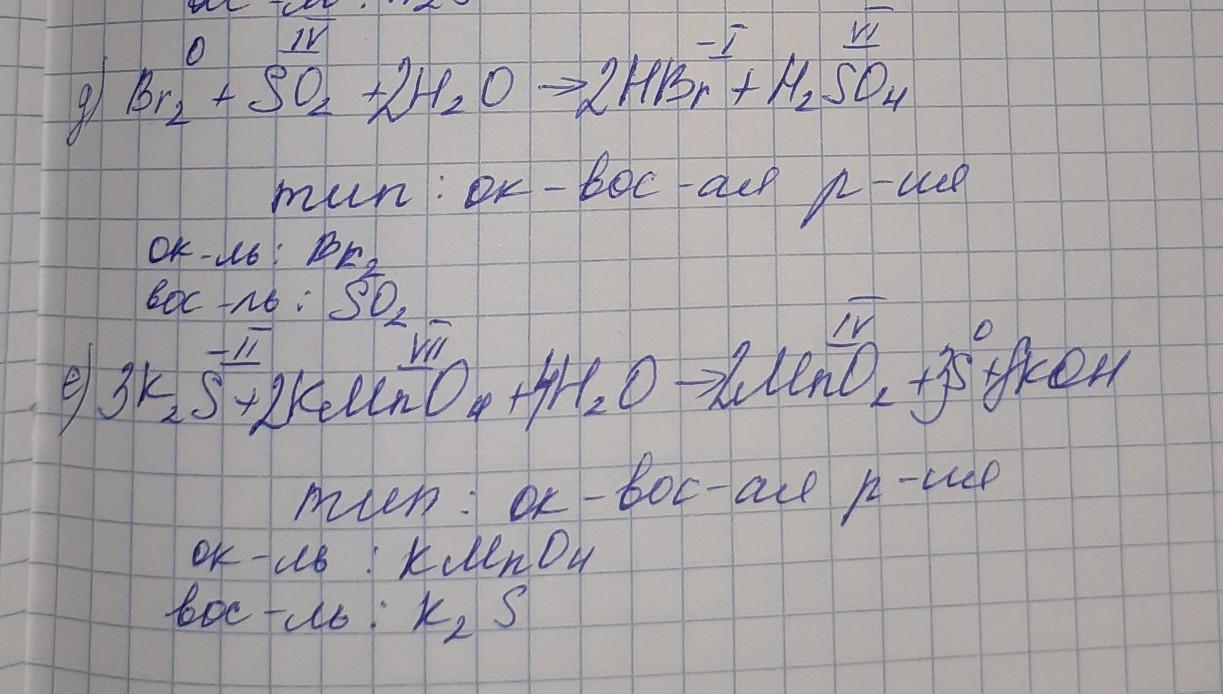 д) Br₂⁰ + S^IV O₂ + 2H₂O → 2HBr^-I + H₂S^VI O₄
тип: ок-вос-ая р-ия
ок-ль: Br₂
вос-ль: SO₂
е) 3K₂S^-II + 2KMn^VII O₄ + 4H₂O → 2Mn^IV O₂ + 3S⁰ + 8KOH
тип: ок-вос-ая р-ия
ок-ль: KMnO₄
вос-ль: K₂S